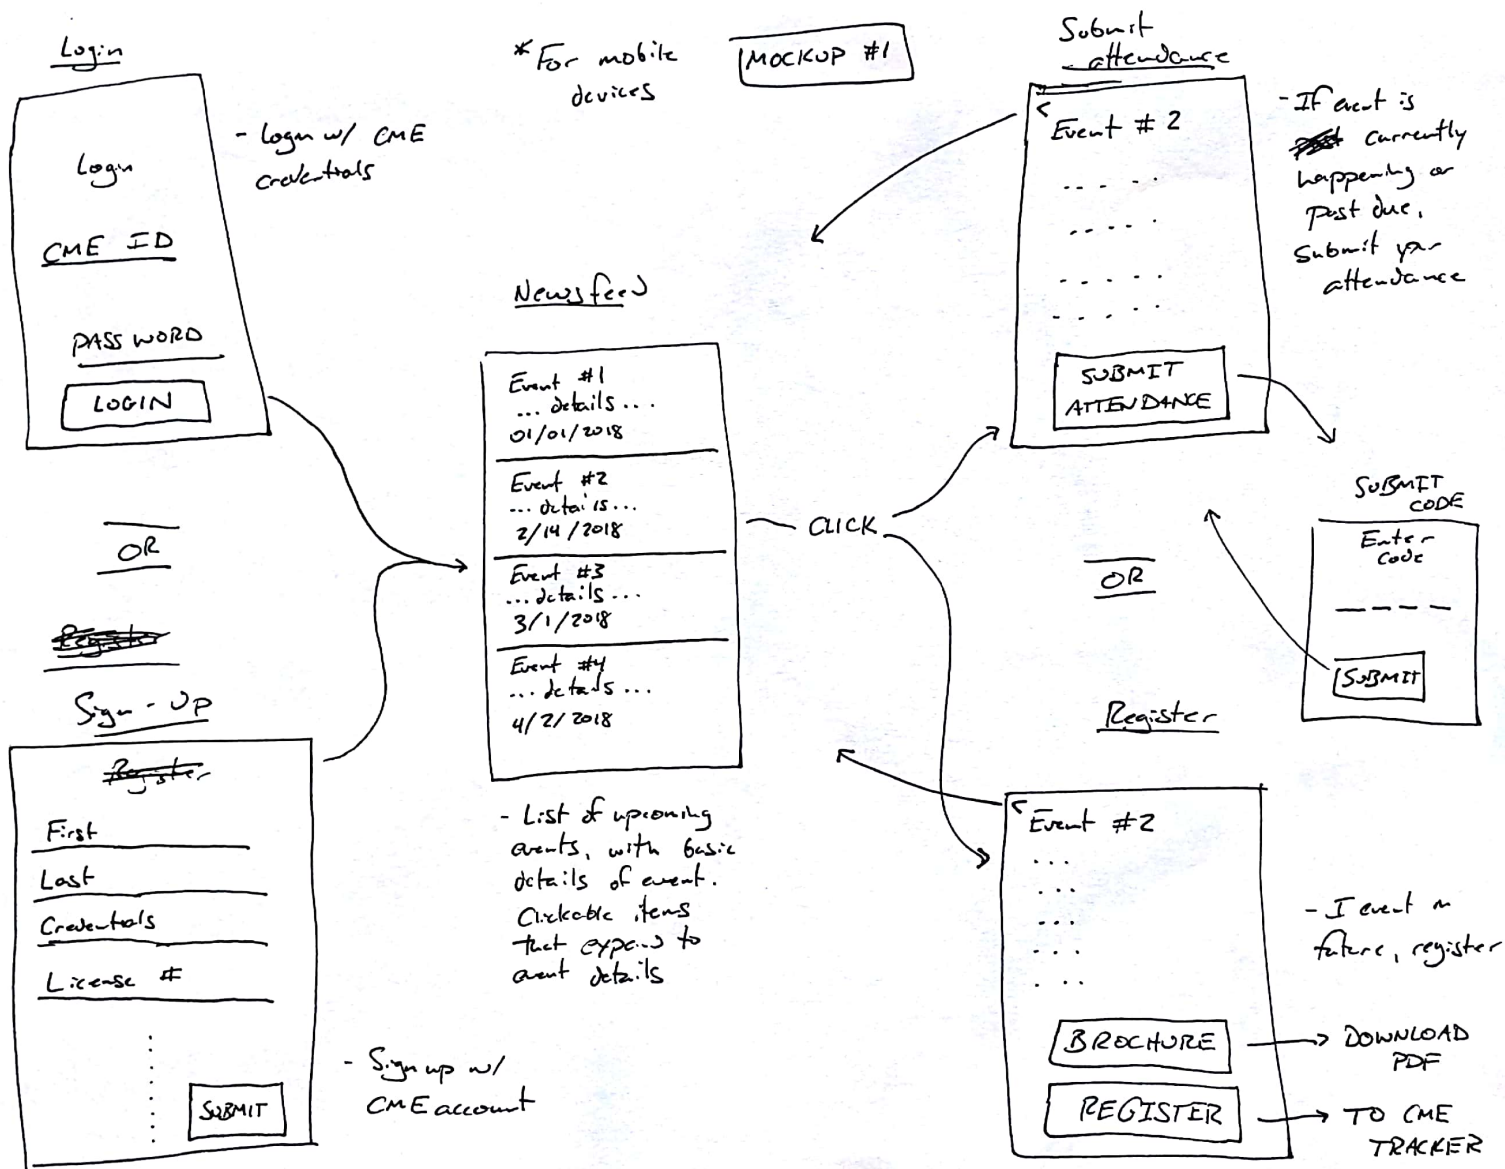 Login
Login
CME ID
PASSWORD
LOGIN
- Login w/ CME
credentials
OR
Register
Sign-Up
Register
First
Last
Credentials
License #
SUBMIT
- Sign up w/
CME account
* For mobile
devices
MOCKUP #1
Newsfeed
Event #1
... details ...
01/01/2018
Event #2
... details ...
2/14/2018
Event #3
... details ...
3/1/2018
Event #4
... details ...
4/2/2018
- List of upcoming
events, with basic
details of event.
Clickable items
that expand to
event details
CLICK
Submit
attendance
<
Event # 2
SUBMIT
ATTENDANCE
- If event is
currently
happening or
past due,
Submit your
attendance
SUBMIT
CODE
Enter
Code
SUBMIT
OR
Register
<
Event #2
...
...
...
...
...
BROCHURE
REGISTER
- I event in
future, register
DOWNLOAD
PDF
TO CME
TRACKER